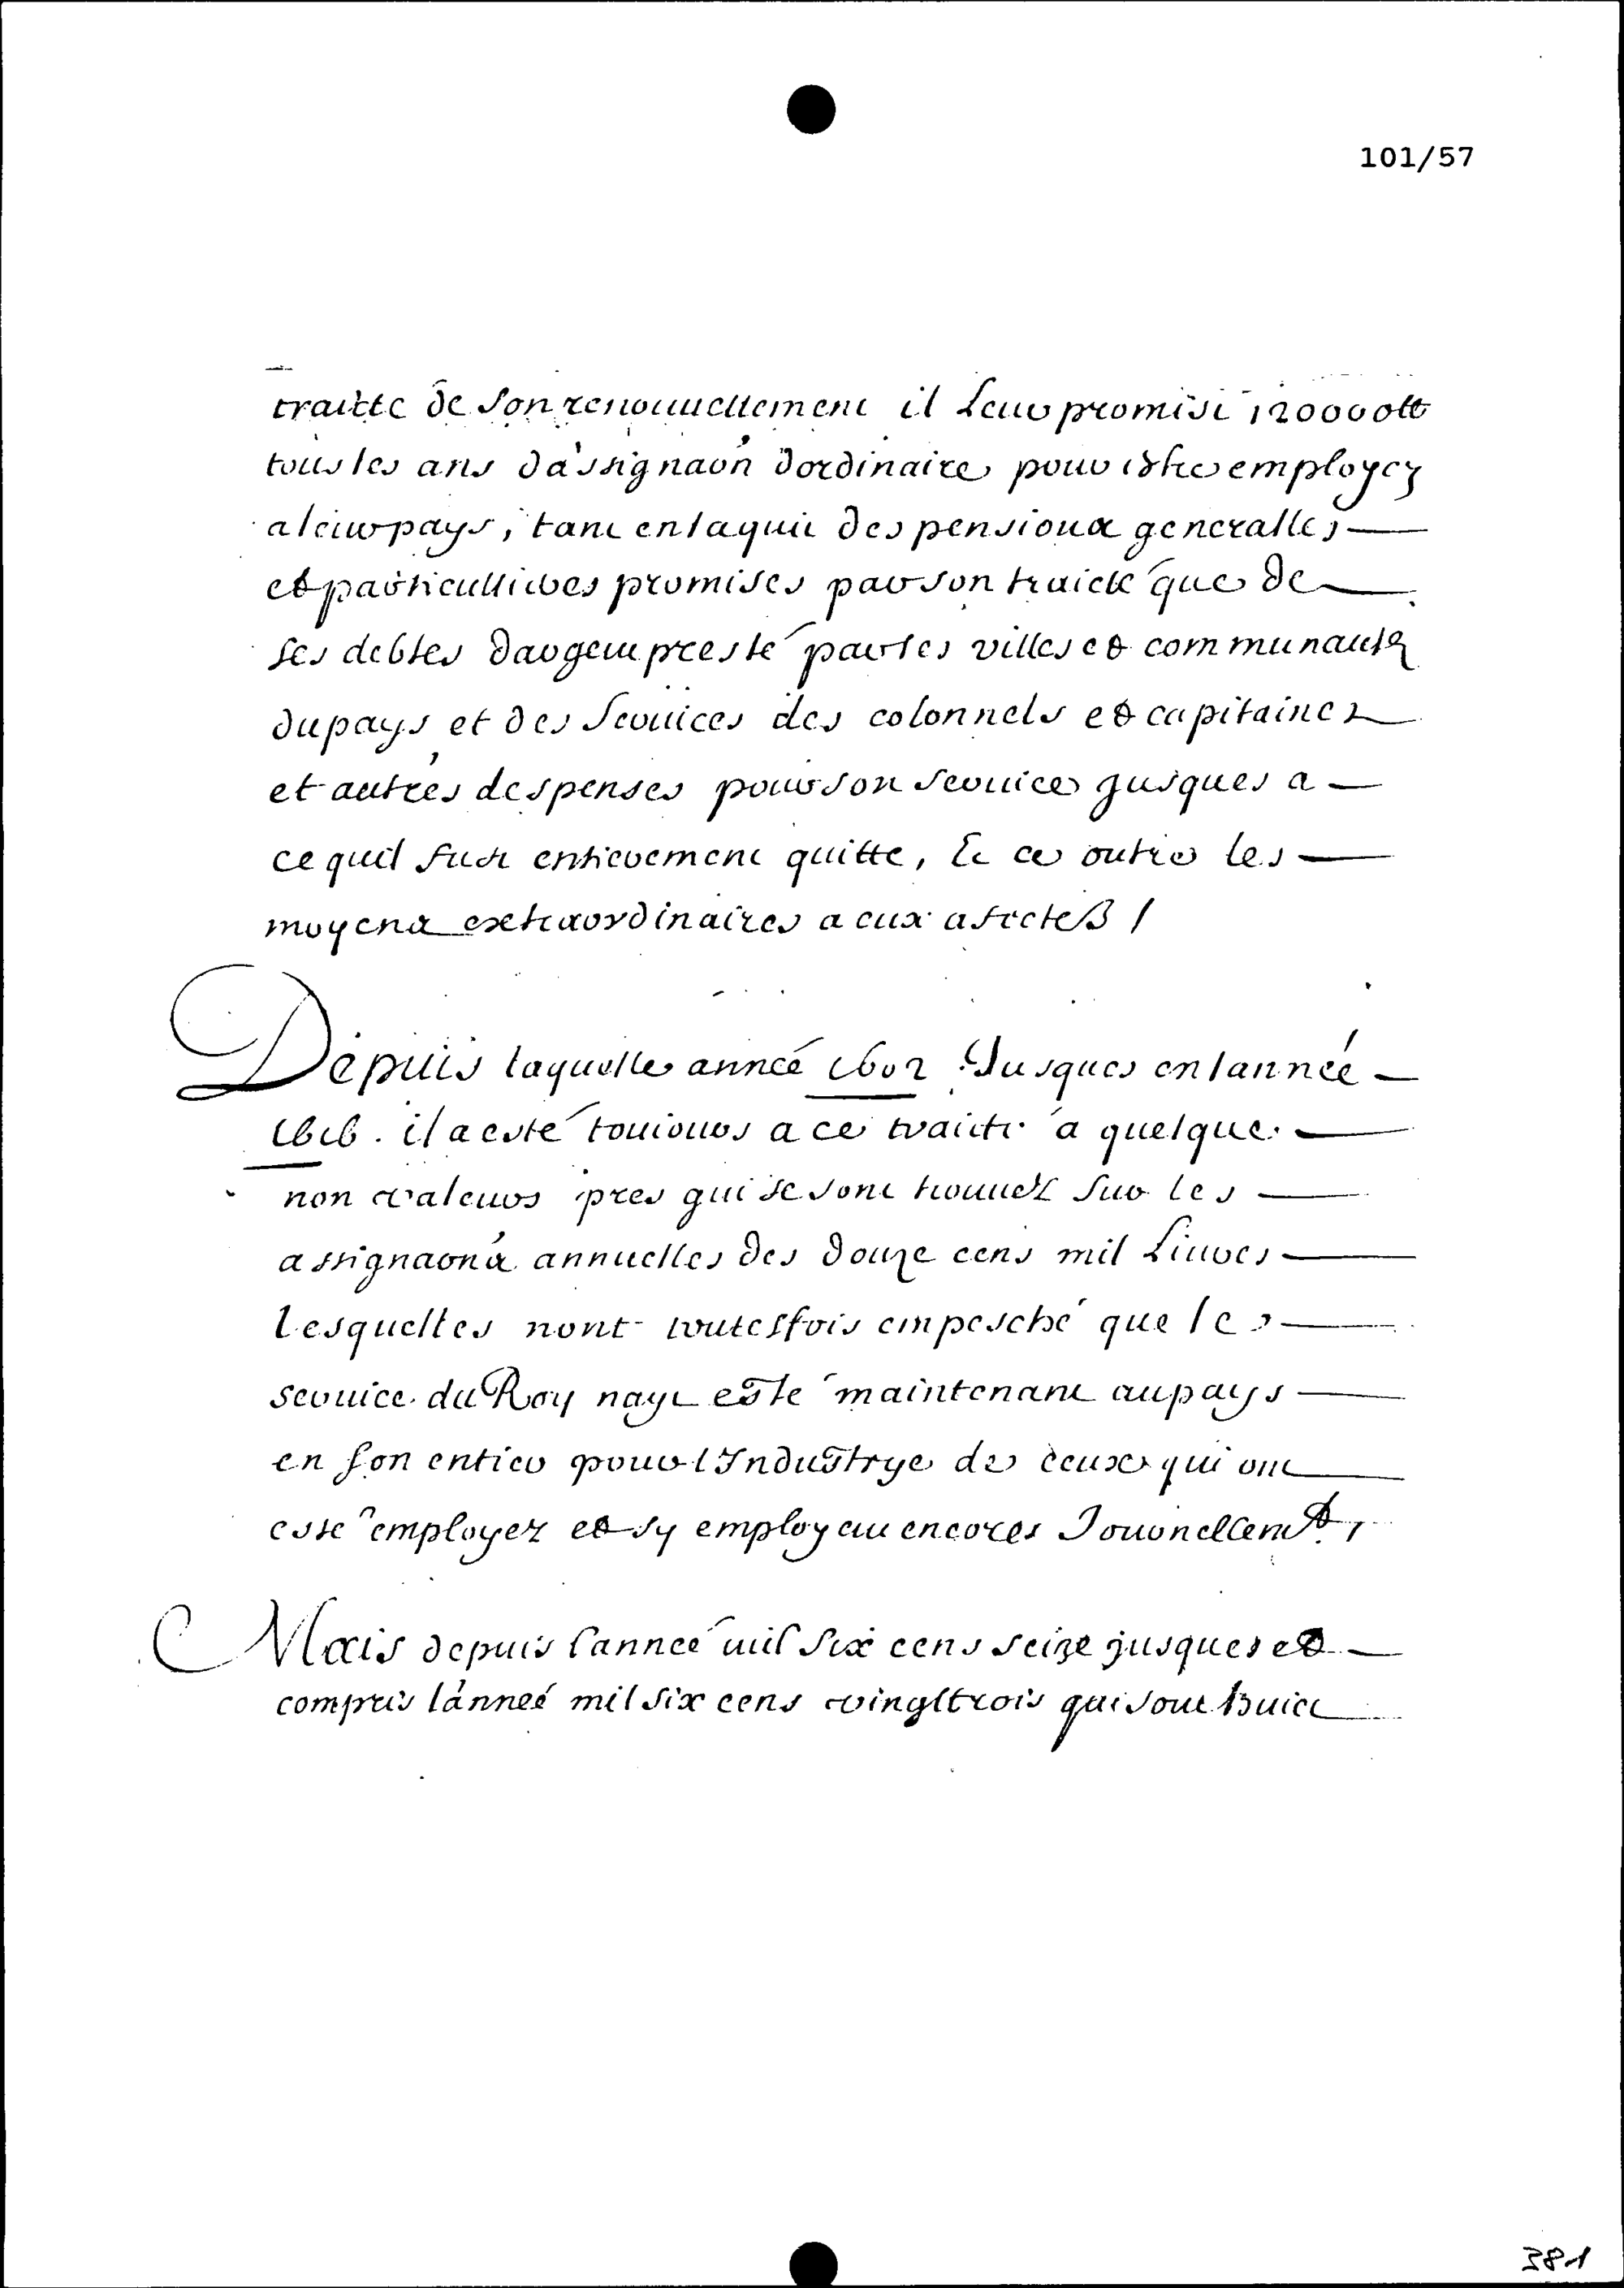 101/57
traitte de son renouuellement il Leur promist 1200000tt
tous les ans dassignaon dordinaire pour estre employez
a leur pays, tant en laquit des pensions generalles
et particullieres promises par son traicté que de
ses debtes dargent presté par les villes et communautez
du pays et des seruices des colonnels et capitaines
et autres despenses pour son seruice jusques a
ce quil fust entierement quitte, Et ce outre les
moyens extraordinaires a eux afectes /
Depuis laquelle année 1602 Jusques en lannée
1616. il a esté tousiours a ce traicté a quelque
non valeurs pres qui se sont trouuez sur les
assignaons annuelles des douze cens mil Liures
Lesquelles nont toutesfois empesché que le
seruice du Roy nayt esté maintenant au pays
en son entier pour lIndustrye de ceux qui ont
esté employez et sy employent encores Journellemt,
Mais depuis lannee mil six cens seize jusques et
compris lanneé mil six cens vingttrois qui sont huict
381